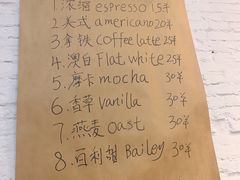 1.浓缩 espresso 15¥
2.美式 americano 20¥
3.拿铁 Coffee latte 25¥
4.澳白 Flat white 25¥
5.摩卡 mocha 30¥
6.香草 Vanilla 30¥
7.燕麦 Oast 30¥
8.百利甜 Bailey 30¥